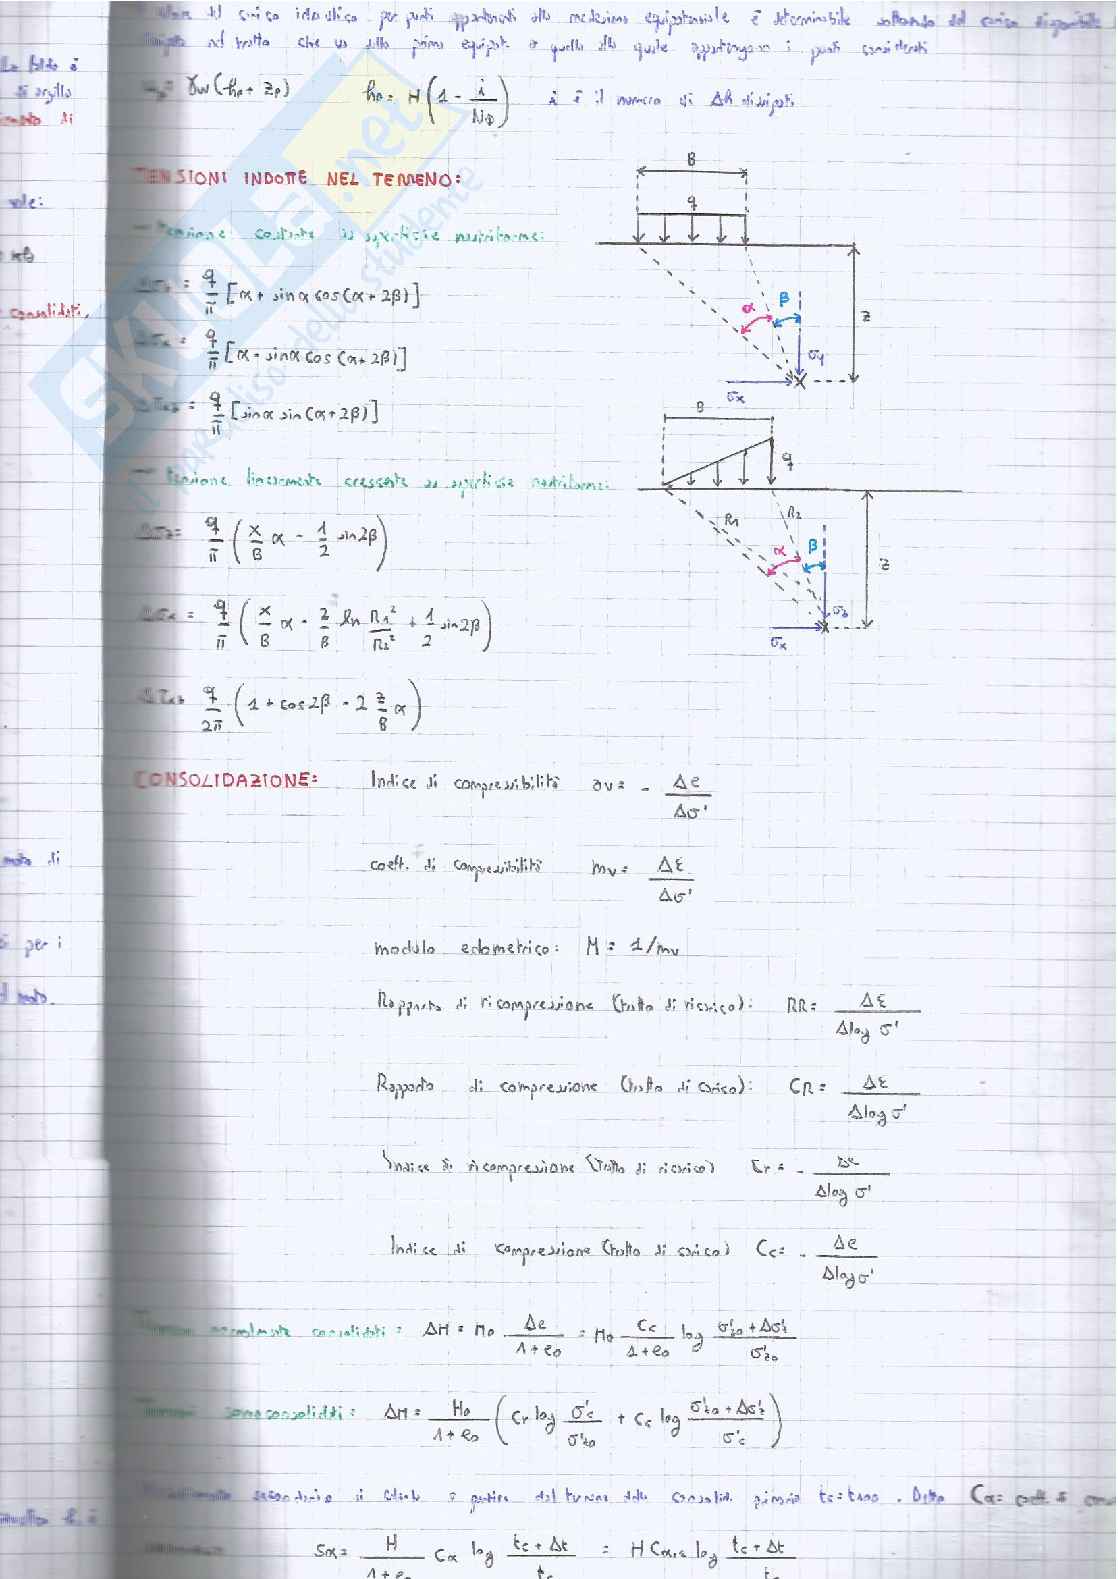 del carico idraulico per punti appartenenti alla medesima equipotenziale è determinabile sottraendo dal carico disponibile
nel tratto che va dalla prima equipot. a quella alla quale appartengono i punti considerati
La falda è
di argilla
di
vale:
consolidati.
moto di
per i
il moto.
γw(hp + zp)   hp = H(1 - i/NΦ)   i è il numero di Δh dissipati
TENSIONI INDOTTE NEL TERRENO:
- Tensione costante su superficie nastriforme:
Δσz = q/π [α + sinα cos(α + 2β)]
Δσx = q/π [α - sinα cos(α + 2β)]
q/π [sinα sin(α + 2β)]
B
q
α
β
z
σy
σx
- Tensione linearmente crescente su superficie nastriforme:
Δσz = q/π (x/B α - 1/2 sin2β)
Δσx = q/π (x/B α - z/B ln R1²/R2² + 1/2 sin2β)
q/2π (1 + cos2β - 2 z/B α)
B
q
R1
R2
α
β
z
σz
σx
CONSOLIDAZIONE:   Indice di compressibilità   av = - Δe/Δσ'
coeff. di compressibilità   mv = Δε/Δσ'
modulo edometrico: M = 1/mv
Rapporto di ricompressione (tratto di ricarico): RR = Δε/Δlog σ'
Rapporto di compressione (tratto di carico): CR = Δε/Δlog σ'
Indice di ricompressione (tratto di ricarico)   Cr = - Δe/Δlog σ'
Indice di compressione (tratto di carico)   Cc = - Δe/Δlog σ'
Terreni normalmente consolidati: ΔH = H0 Δe/1+e0 = H0 Cc/1+e0 log σ'z0 + Δσ'z/σ'z0
Terreni sovraconsolidati: ΔH = H0/1+e0 (Cr log σ'c/σ'z0 + Cc log σ'z0 + Δσ'z/σ'c)
secondario si calcola a partire dal termine della consolid. primaria tc = t100. Detto Cα = coeff. di
Sα = H/1+e0 Cα log tc + Δt/tc = H Cα,ε log tc + Δt/tc
SKUOLA.net
il paradiso dello studente